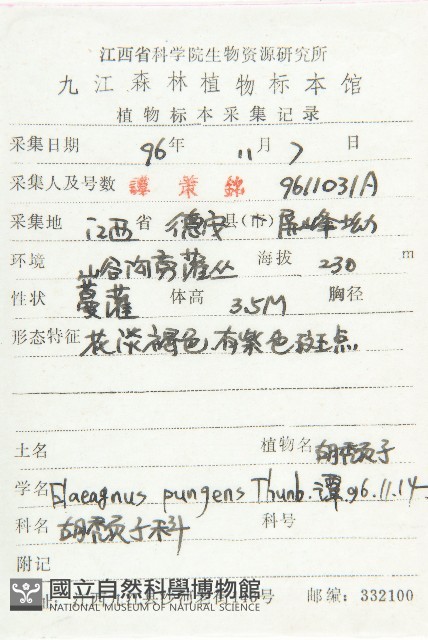 江西省科学院生物资源研究所
九江森林植物标本馆
植物标本采集记录
采集日期 96年 11月 7 日
采集人及号数 譚策銘 9611031A
采集地 江西省 德安县(市) 屏峰坳
环境 山谷沟旁灌丛 海拔 230 m
性状 蔓灌 体高 3.5M 胸径
形态特征 花淡褐色,有紫色斑点
土名 植物名 胡颓子
学名 Elaeagnus pungens Thunb. 谭 96.11.14
科名 胡颓子科 科号
附记
國立自然科學博物館
NATIONAL MUSEUM OF NATURAL SCIENCE
邮编：332100